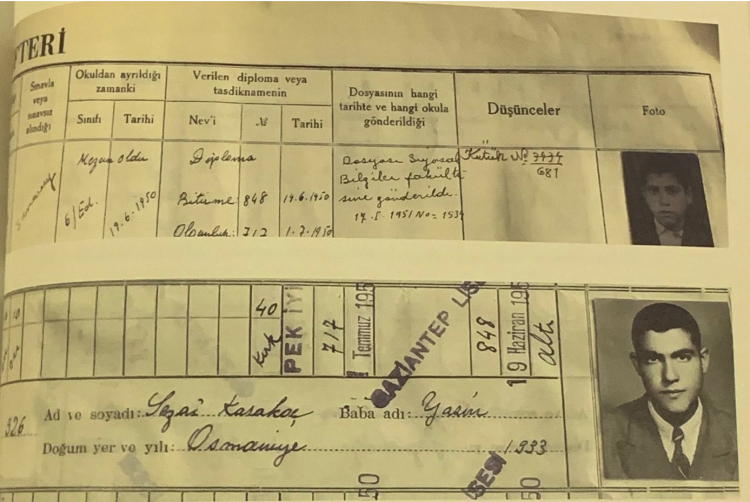 TERİ
Sınavla veya sınavsız alındığı
Okuldan ayrıldığı zamanki
Verilen diploma veya tasdiknamenin
Dosyasının hangi tarihte ve hangi okula gönderildiği
Düşünceler
Foto
Sınıfı
Tarihi
Nev'i
№
Tarihi
Mezun oldu
6/Ed.
19-6-1950
Diploma
Bitirme 848 19.6.1950
Olgunluk 717 1-7-1950
Dosyası Siyasal
Bilgiler fakülte
sine gönderildi.
14-5-1951 No= 1534
Kütük № 7474
681
40
Kırk
PEK İYİ
717
1 Temmuz 195
GAZİANTEP LİSE
848
19 Haziran 195
altı
326
Ad ve soyadı: Sezai Karakoç Baba adı: Yasin
Doğum yer ve yılı: Osmaniye 1933
50
SESİ
50